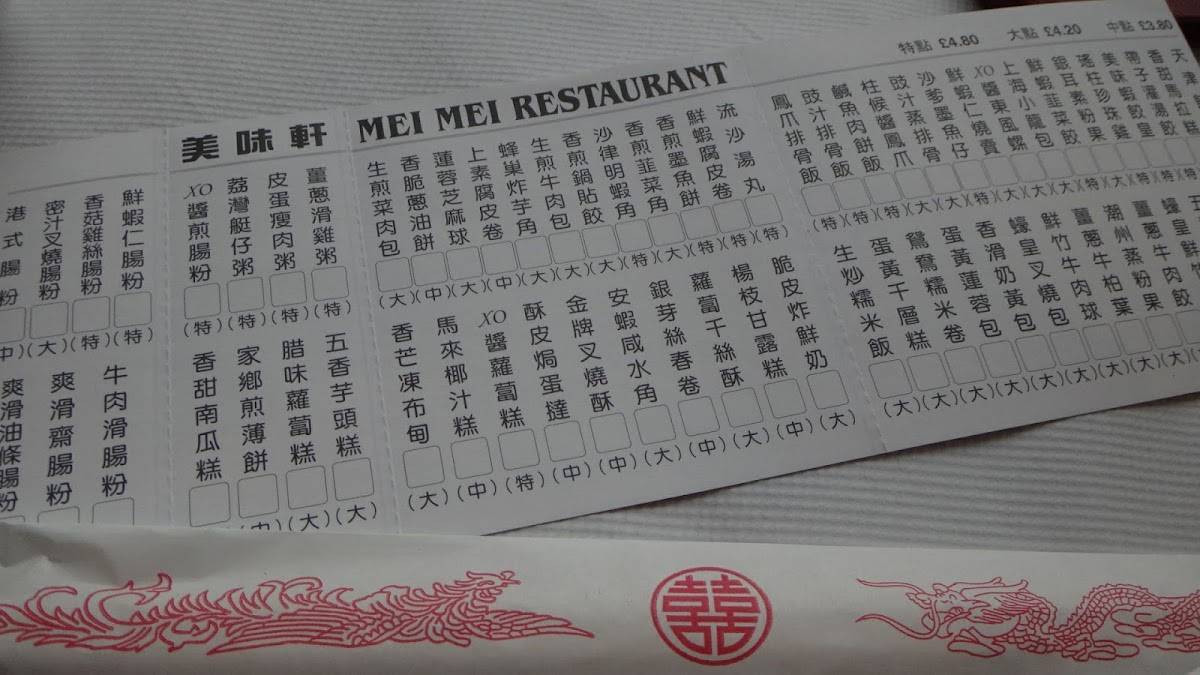 美味軒 MEI MEI RESTAURANT
特點 £4.80 大點 £4.20 中點 £3.80
香甜馬拉糕
美味蝦餃皇
瑤柱珍珠雞
銀耳素粉果
鮮蝦韮菜餃
上海小籠包
XO醬東風螺
鮮蝦仁燒賣
沙爹墨魚仔
豉汁蒸排骨
柱候醬鳳爪
鹹魚肉餅飯
豉汁排骨飯
鳳爪排骨飯
潮州蒸粉果
薑蔥牛柏葉
鮮竹牛肉球
蠔皇叉燒包
香滑奶黃包
蛋黃蓮蓉包
鴛鴦糯米卷
蛋黃千層糕
生炒糯米飯
(大)(大)(大)(大)(大)(大)(大)(大)
流沙湯丸
鮮蝦腐皮卷
香煎墨魚餅
香煎韮菜角
沙律明蝦角
香煎鍋貼餃
生煎牛肉包
蜂巢炸芋角
上素腐皮卷
蓮蓉芝麻球
香脆蔥油餅
生煎菜肉包
(大)(中)(大)(中)(大)(大)(大)(特)(大)(特)(特)(特)
脆皮炸鮮奶
楊枝甘露糕
蘿蔔千絲酥
銀芽絲春卷
安蝦咸水角
金牌叉燒酥
酥皮焗蛋撻
XO醬蘿蔔糕
馬來椰汁糕
香芒凍布甸
(大)(中)(特)(中)(中)(大)(中)(大)(中)(大)
薑蔥滑雞粥
皮蛋瘦肉粥
荔灣艇仔粥
XO醬煎腸粉
(特)(特)(特)(特)
五香芋頭糕
腊味蘿蔔糕
家鄉煎薄餅
香甜南瓜糕
(中)(大)(大)
鮮蝦仁腸粉
香菇雞絲腸粉
密汁叉燒腸粉
港式腸粉
中)(大)(特)(特)
牛肉滑腸粉
爽滑齋腸粉
爽滑油條腸粉
囍